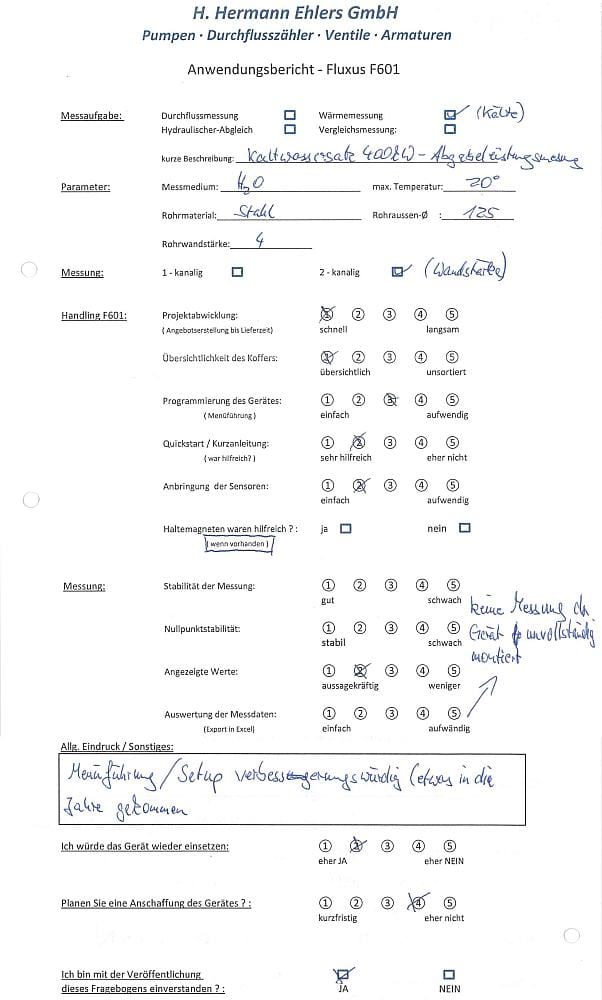 H. Hermann Ehlers GmbH
Pumpen · Durchflusszähler · Ventile · Armaturen
Anwendungsbericht - Fluxus F601
Messaufgabe: Durchflussmessung Wärmemessung (Kälte)
Hydraulischer-Abgleich Vergleichsmessung:
kurze Beschreibung: Kaltwassersatz 400kW - Abgabeleistungsmessung
Parameter: Messmedium: H2O max. Temperatur: 20°
Rohrmaterial: Stahl Rohraussen-Ø : 125
Rohrwandstärke: 4
Messung: 1 - kanalig 2 - kanalig (Wandstärke)
Handling F601: Projektabwicklung: 1 2 3 4 5
( Angebotserstellung bis Lieferzeit) schnell langsam
Übersichtlichkeit des Koffers: 1 2 3 4 5
übersichtlich unsortiert
Programmierung des Gerätes: 1 2 3 4 5
( Menüführung ) einfach aufwendig
Quickstart / Kurzanleitung: 1 2 3 4 5
( war hilfreich? ) sehr hilfreich eher nicht
Anbringung der Sensoren: 1 2 3 4 5
einfach aufwendig
Haltemagneten waren hilfreich ? : ja nein
( wenn vorhanden )
Messung: Stabilität der Messung: 1 2 3 4 5
gut schwach keine Messung da
Nullpunktstabilität: 1 2 3 4 5 Gerät unvollständig
stabil schwach montiert
Angezeigte Werte: 1 2 3 4 5
aussagekräftig weniger
Auswertung der Messdaten: 1 2 3 4 5
(Export in Excel) einfach aufwändig
Allg. Eindruck / Sonstiges:
Menüführung / Setup (etwas in die
Jahre gekommen
Ich würde das Gerät wieder einsetzen: 1 2 3 4 5
eher JA eher NEIN
Planen Sie eine Anschaffung des Gerätes ? : 1 2 3 4 5
kurzfristig eher nicht
Ich bin mit der Veröffentlichung
dieses Fragebogens einverstanden ? : JA NEIN